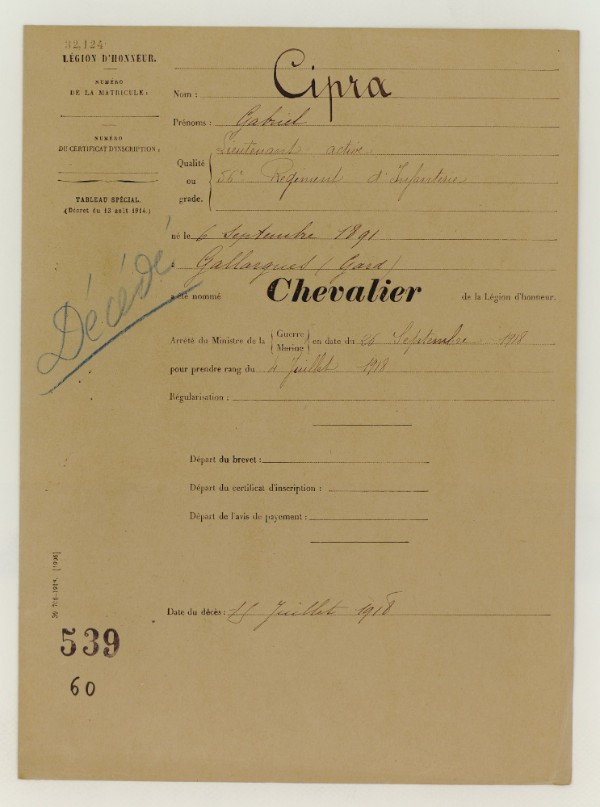 32.124
LÉGION D'HONNEUR.
NUMÉRO
DE LA MATRICULE :
NUMÉRO
DU CERTIFICAT D'INSCRIPTION :
TABLEAU SPÉCIAL.
(Décret du 13 août 1914.)
Nom : Cipra
Prénoms : Gabriel
Qualité
ou
grade.
Lieutenant active
56e Régiment d'Infanterie
né le 6 septembre 1891
à Gallargues (Gard)
Décédé
a été nommé Chevalier de la Légion d'honneur.
Arrêté du Ministre de la { Guerre Marine } en date du 26 Septembre 1918
pour prendre rang du 4 Juillet 1918
Régularisation :
Départ du brevet :
Départ du certificat d'inscription :
Départ de l'avis de payement :
Date du décès : Juillet 1918
539
60